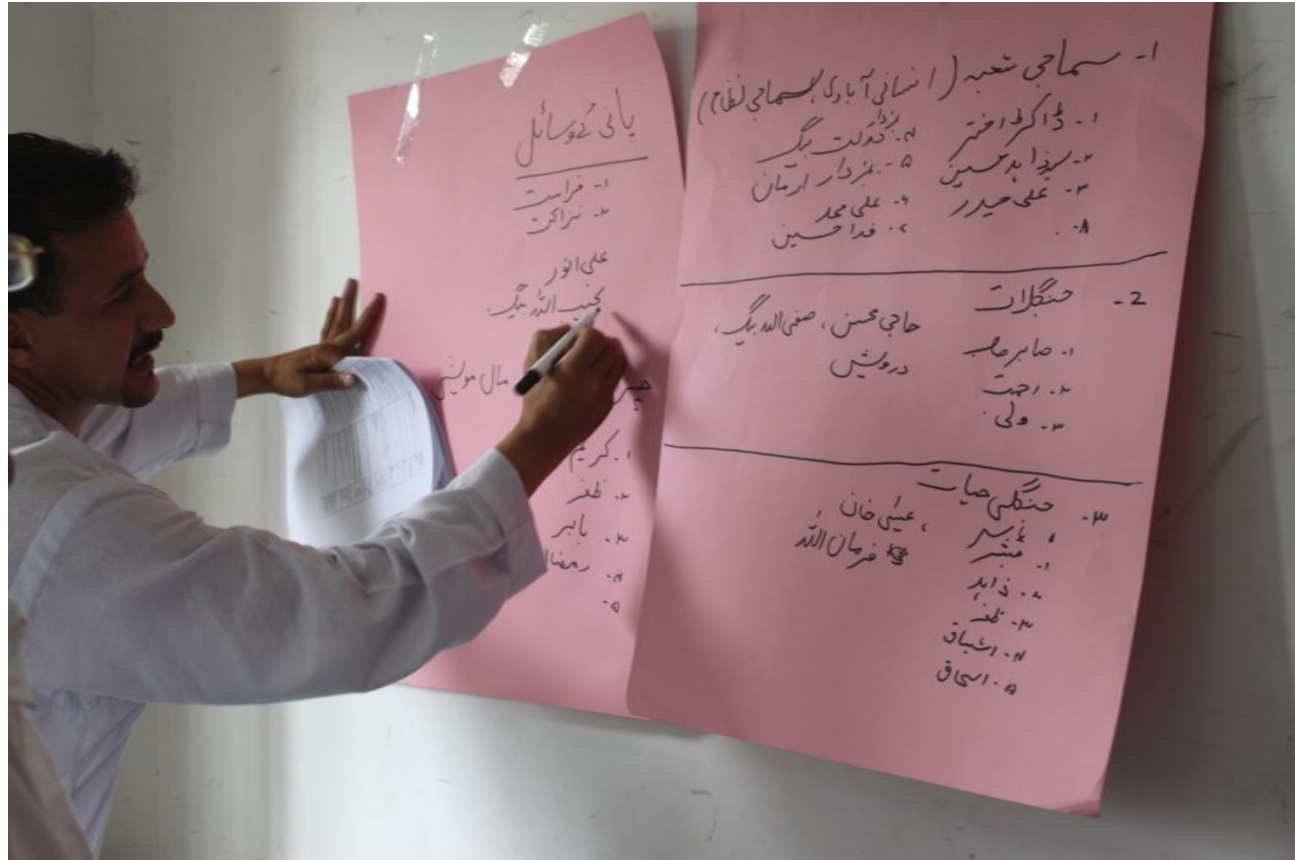 ۱- سماجی شعبہ (انسانی آبادی، سماجی نظام)
۱- ڈاکٹر اختر
۲- سید زاہد حسین
۳- علی حیدر
۴- دولت بیگ
۵- ہزدار ارمان
۶- علی محمد
۷- فدا حسین
۸-
2- جنگلات
۱- صابر
۲- رحمت
۳- ولی
حاجی محسن، صفی اللہ بیگ،
درویش
۳- جنگلی حیات
۱- مبشر
۲- زاہد
۳- ظفر
۴- اشتیاق
۵- اسحاق
، عیسیٰ خان
فرمان اللہ
پانی کے وسائل
۱- فراست
۲- نزاکت
علی انور
اللہ بیگ
مال مویشی
۱- کریم
۲- ظفر
۳- بابر
۴- رمضا
۵-